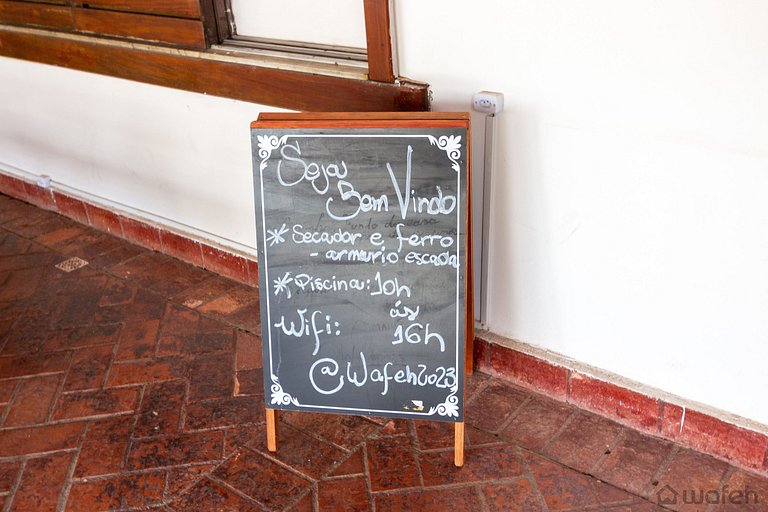 Seja
Bem Vindo
* Secador e ferro
- armario escada
* Piscina: 10h
ás
Wifi: 16h
@Wafeh2023
wafeh